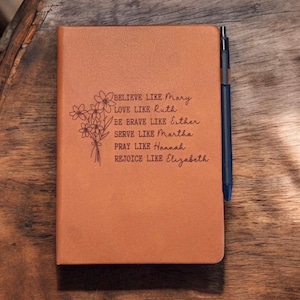 BELIEVE LIKE Mary
LOVE LIKE Ruth
BE BRAVE LIKE Esther
SERVE LIKE Martha
PRAY LIKE Hannah
REJOICE LIKE Elizabeth